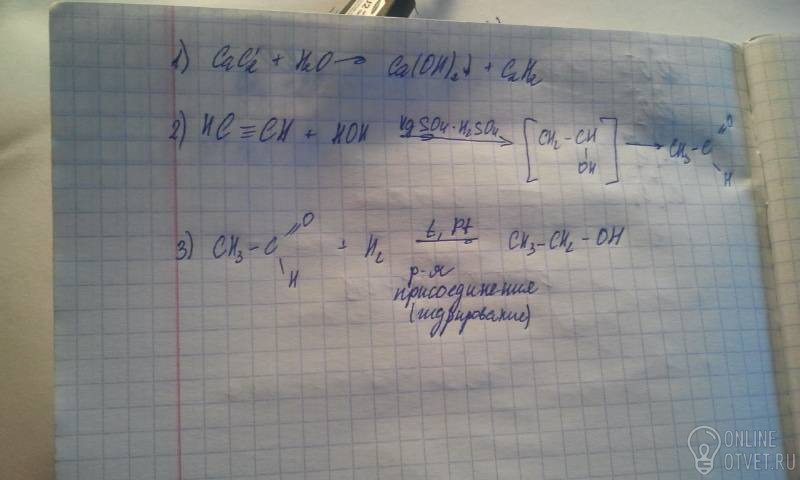 1) CaC2 + H2O → Ca(OH)2↓ + C2H2
2) HC≡CH + HOH HgSO4·H2SO4 → [CH2-CH OH] → CH3-C=O H
3) CH3-C=O H + H2 t, Pt → CH3-CH2-OH
р-я
присоединения
(гидрирование)
ONLINE
OTVET.RU